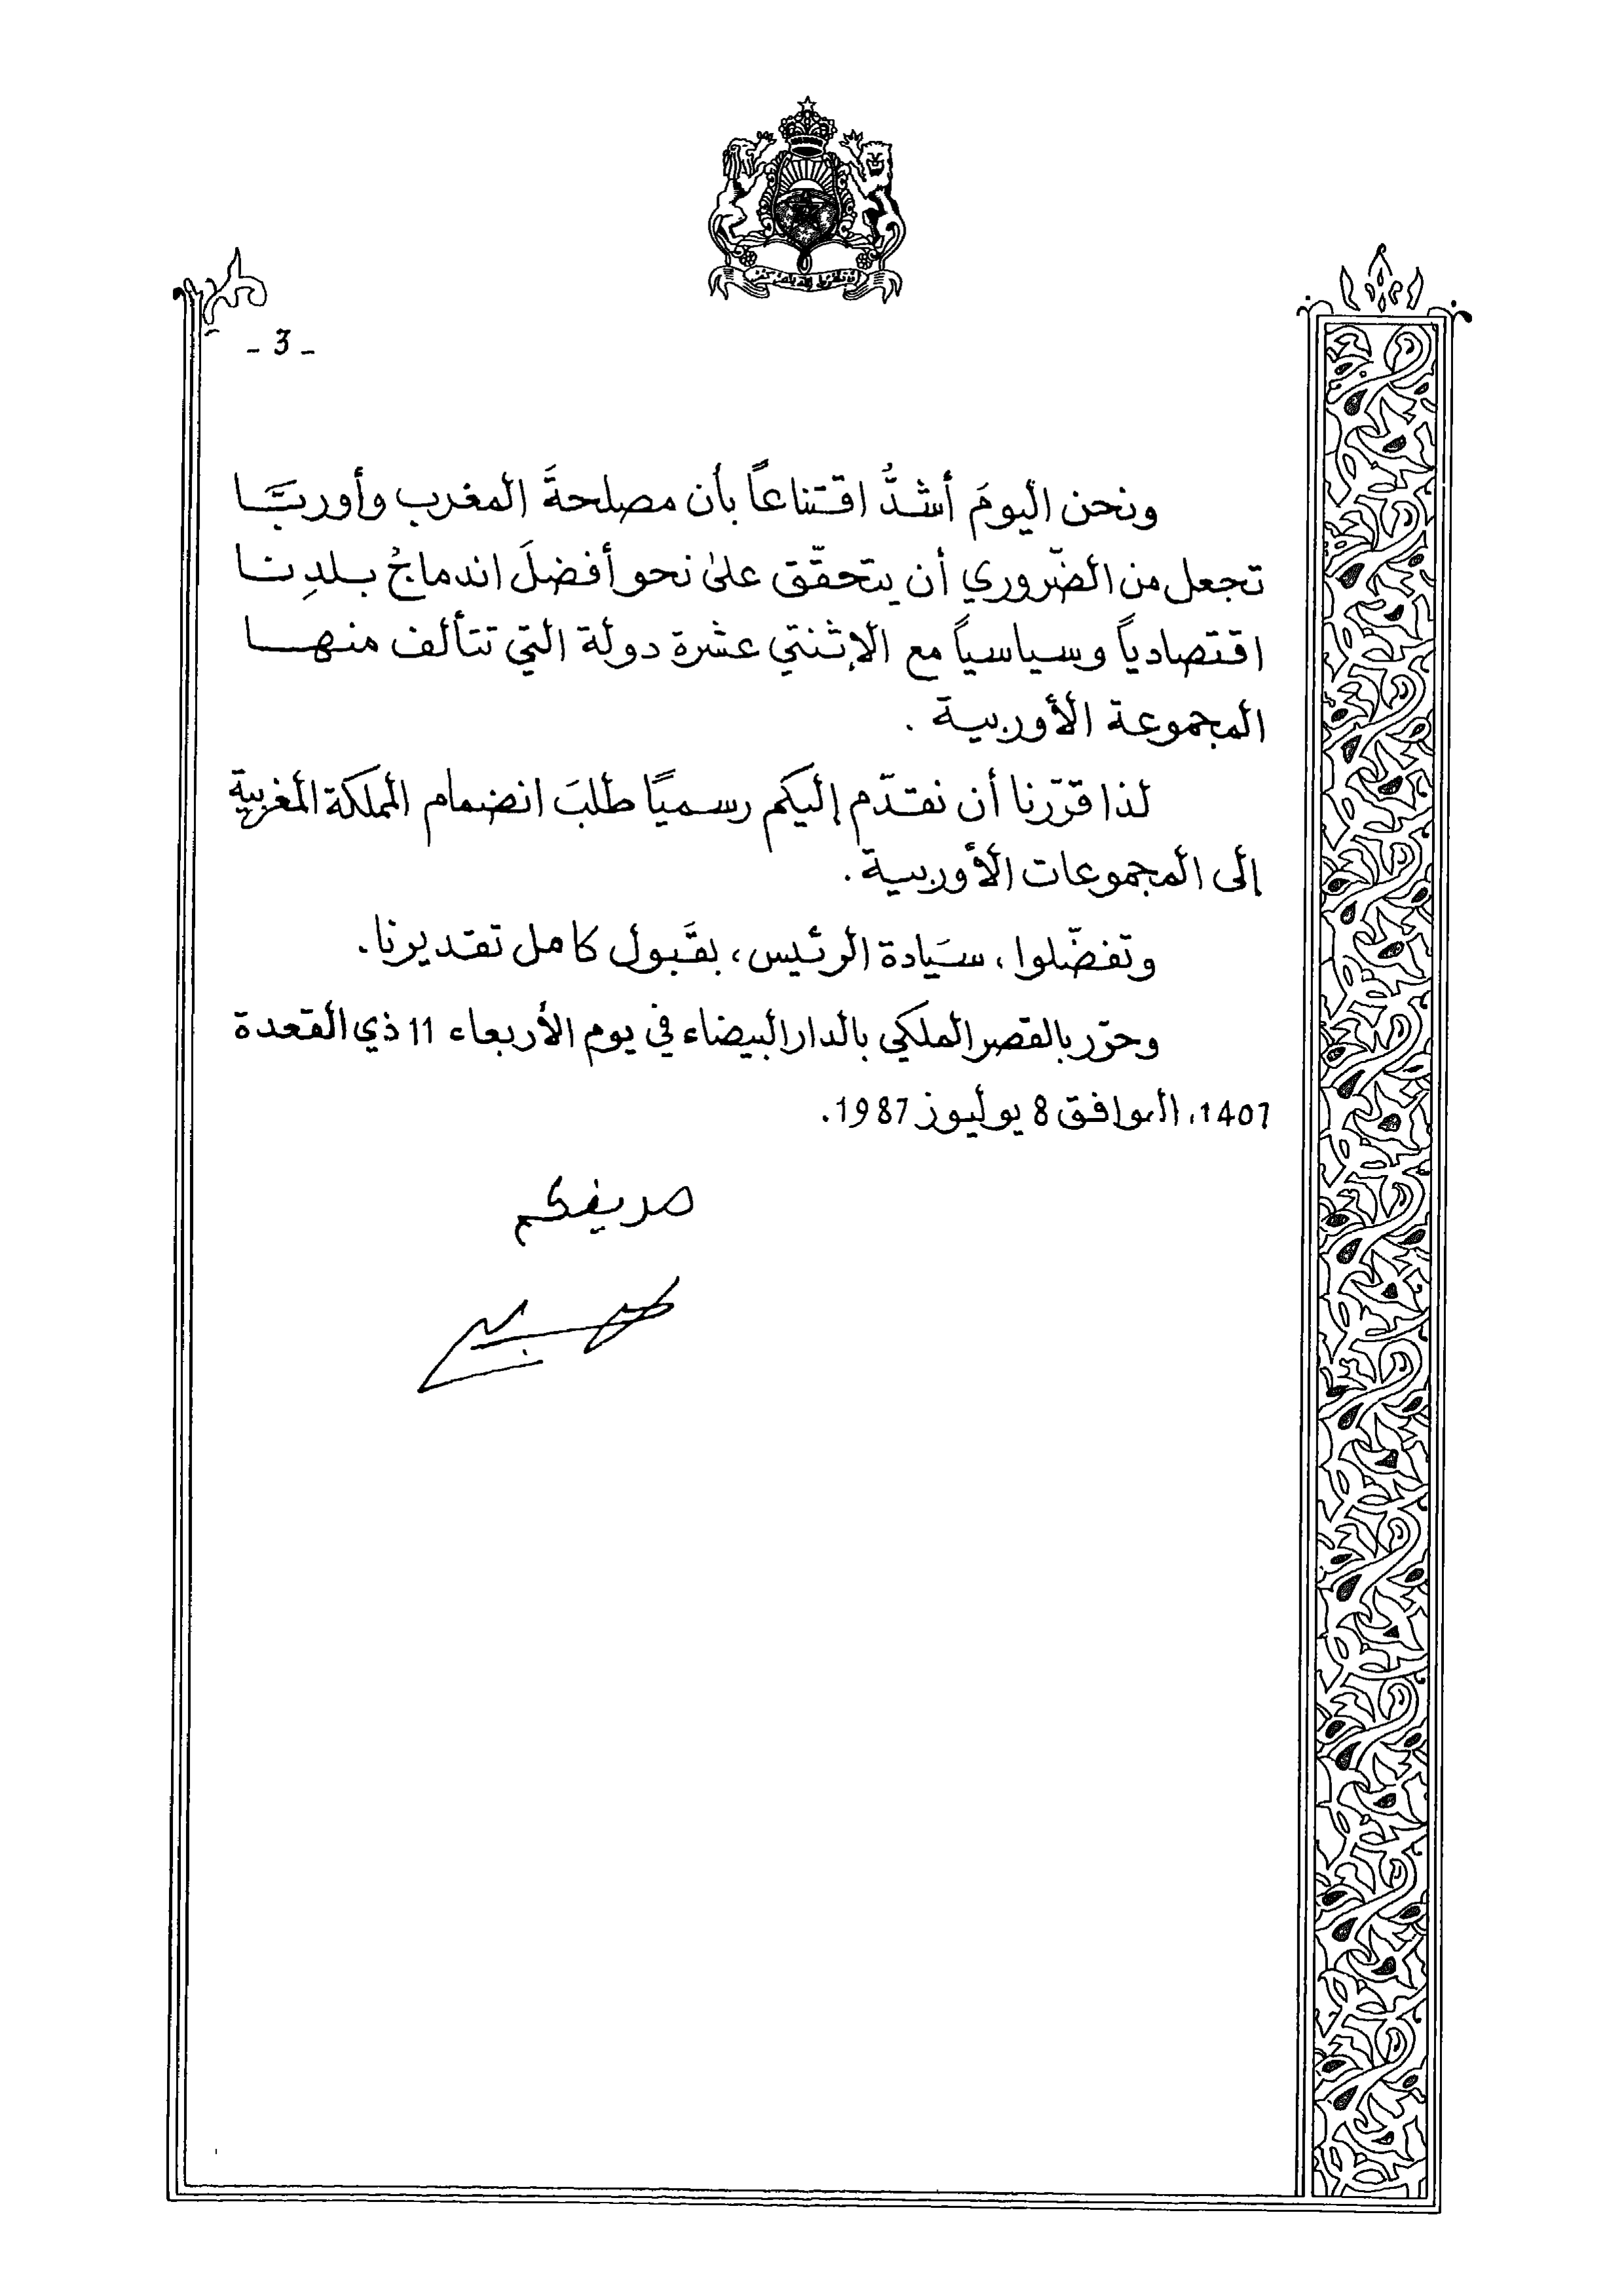 - 3 -
ونحن اليومَ أشدُّ اقتناعاً بأن مصلحةَ المغرب وأوربَّا
تجعل من الضّروري أن يتحقّق على نحو أفضلَ اندماجُ بلدِنا
اقتصادياً وسياسياً مع الإثنتي عشرة دولة التي تتألف منها
المجموعة الأوربية .
لذا قرّرنا أن نقدّم إليكم رسميًا طلبَ انضمام المملكة المغربية
إلى المجموعات الأوربية .
وتفضّلوا ، سيَادة الرئيس ، بقَبول كامل تقديرنا .
وحرّر بالقصر الملكي بالدار البيضاء في يوم الأربعاء 11 ذي القعدة
1407، الموافق 8 يوليوز 1987.
صديقكم